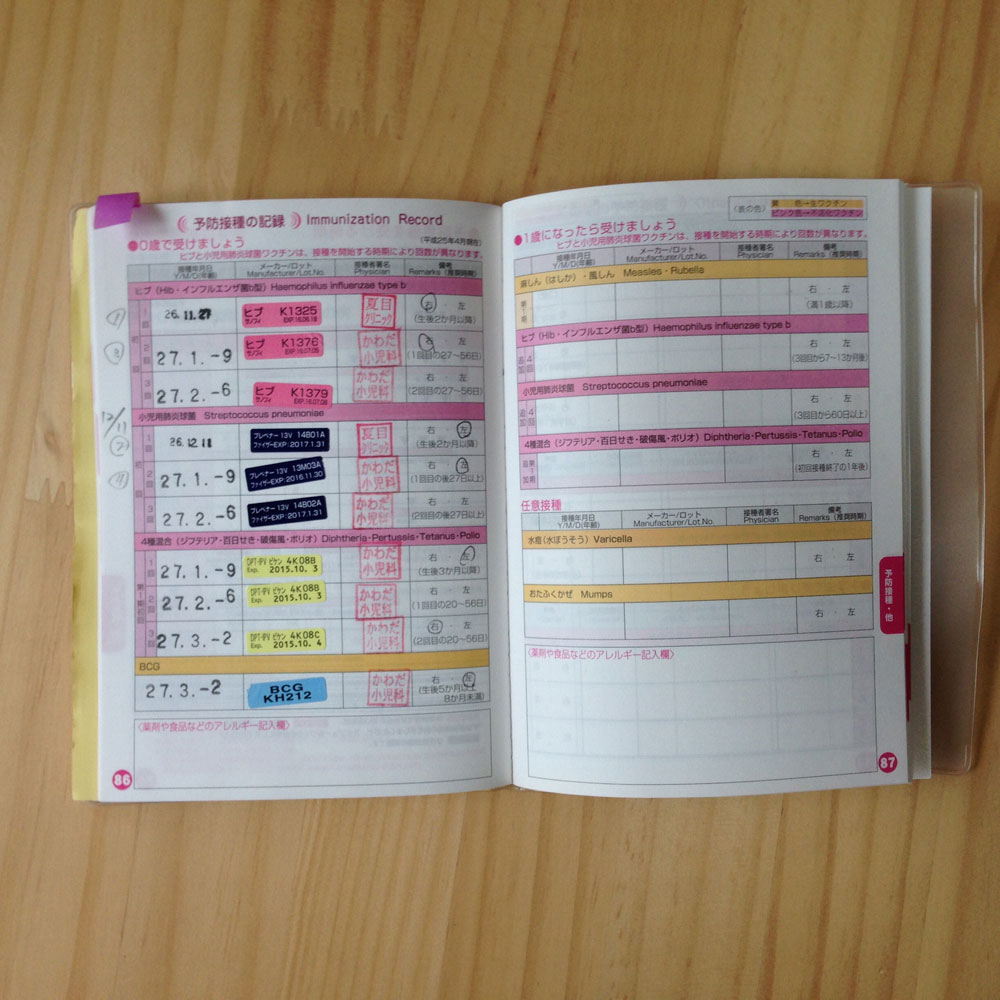 予防接種の記録 Immunization Record
●0歳で受けましょう (平成25年4月現在)
ヒブと小児用肺炎球菌ワクチンは、接種を開始する時期により回数が異なります。
接種年月日 Y/M/D(年齢) メーカー/ロット Manufacturer/Lot.No. 接種者署名 Physician 備考 Remarks (推奨時期)
ヒブ (Hib・インフルエンザ菌b型) Haemophilus influenzae type b
① 初 1回 26.11.27 ヒブ サノフィ K1325 EXP.16.06.18 夏目クリニック 右・左 (生後2か月以降)
③ 2回 27.1.-9 ヒブ サノフィ K1376 かわだ小児科 右・左 (1回目の27〜56日)
3回 27.2.-6 ヒブ サノフィ K1379 EXP.16.07.08 かわだ小児科 右・左 (2回目の27〜56日)
小児用肺炎球菌 Streptococcus pneumoniae
12/11 ② 初 1回 26.12.11 プレベナー13V 14B01A ファイザーEXP.2017.1.31 夏目クリニック 右・左 (生後2か月以降)
④ 2回 27.1.-9 プレベナー13V 13M03A ファイザーEXP.2016.11.30 かわだ小児科 右・左 (1回目の後27日以上)
3回 27.2.-6 プレベナー13V 14B02A ファイザーEXP.2017.1.31 かわだ小児科 右・左 (2回目の後27日以上)
4種混合 (ジフテリア・百日せき・破傷風・ポリオ) Diphtheria・Pertussis・Tetanus・Polio
第1期初回 1回 27.1.-9 DPT-IPV ビケン 4K08B Exp. 2015.10.3 かわだ小児科 右・左 (生後3か月以降)
2回 27.2.-6 DPT-IPV ビケン 4K08B Exp. 2015.10.3 かわだ小児科 右・左 (1回目の20〜56日)
3回 27.3.-2 DPT-IPV ビケン 4K08C Exp. 2015.10.4 かわだ小児科 右・左 (2回目の20〜56日)
BCG
27.3.-2 BCG KH212 かわだ小児科 右・左 (生後5か月以上8か月未満)
〈薬剤や食品などのアレルギー記入欄〉
86
〈表の色〉 黄色→生ワクチン
ピンク色→不活化ワクチン
●1歳になったら受けましょう
ヒブと小児用肺炎球菌ワクチンは、接種を開始する時期により回数が異なります。
接種年月日 Y/M/D(年齢) メーカー/ロット Manufacturer/Lot.No. 接種者署名 Physician 備考 Remarks (推奨時期)
麻しん (はしか)・風しん Measles・Rubella
第1期 右・左 (満1歳以降)
ヒブ (Hib・インフルエンザ菌b型) Haemophilus influenzae type b
追加 4回 右・左 (3回目から7〜13か月後)
小児用肺炎球菌 Streptococcus pneumoniae
追加 4回 右・左 (3回目から60日以上)
4種混合 (ジフテリア・百日せき・破傷風・ポリオ) Diphtheria・Pertussis・Tetanus・Polio
第1期追加 右・左 (初回接種終了の1年後)
任意接種
接種年月日 Y/M/D(年齢) メーカー/ロット Manufacturer/Lot.No. 接種者署名 Physician 備考 Remarks (推奨時期)
水痘 (水ぼうそう) Varicella
右・左
おたふくかぜ Mumps
右・左
〈薬剤や食品などのアレルギー記入欄〉
予防接種・他
87